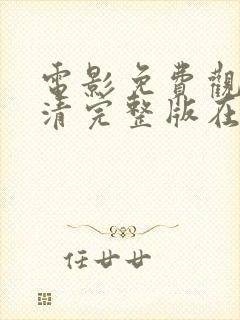 電影免費觀
清完整版在
任廿廿